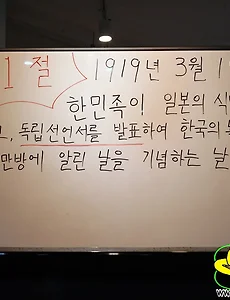 1절 1919년 3월 1
한민족이 일본의 식
, 독립선언서를 발표하여 한국의
만방에 알린 날을 기념하는 날